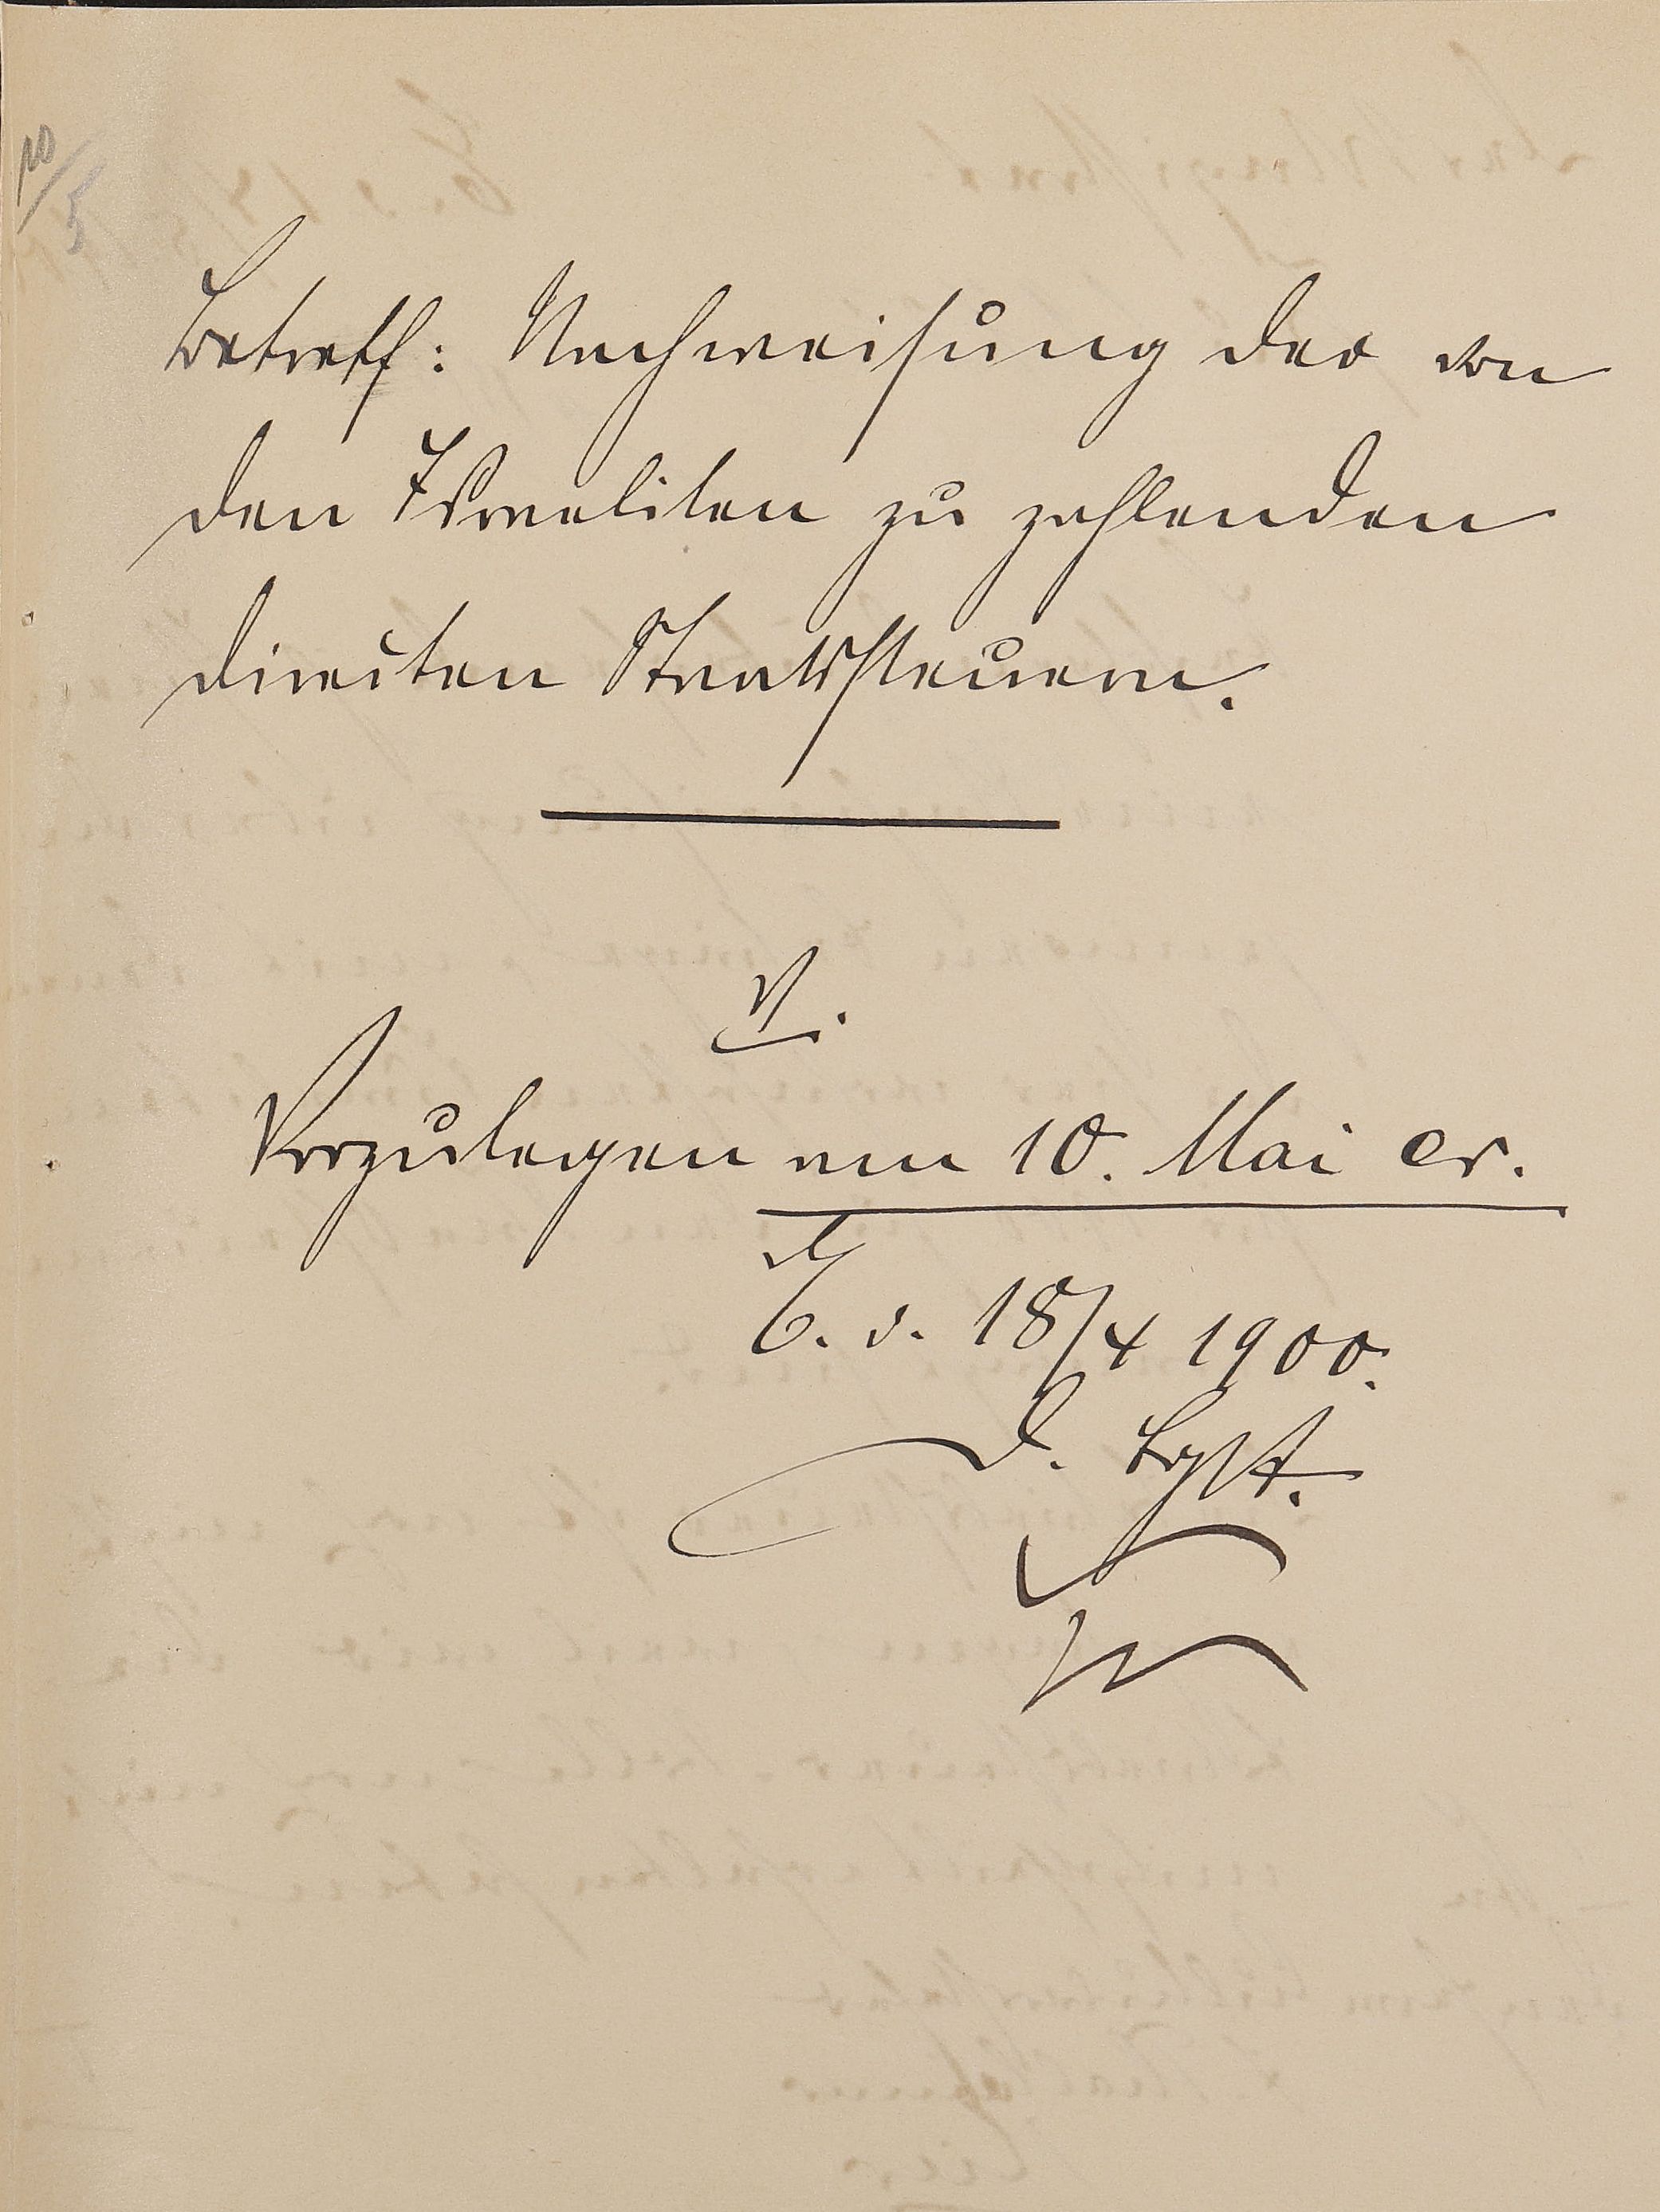 10/5
Betreff: Nachweisung der von
den Israeliten zu zahlenden
directen Staatssteuern.
V.
Vorzulegen am 10. Mai cr.
C. d. 18/4 1900.
D. Bgst.